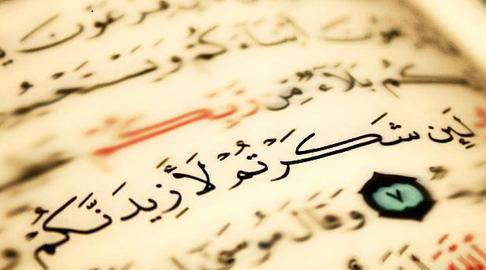 فرعون
أبناءكم ويستحيون
كم بلاء من ربكم
لَئِن شَكَرْتُمْ لَأَزِيدَنَّكُمْ
٧ وقال موسى